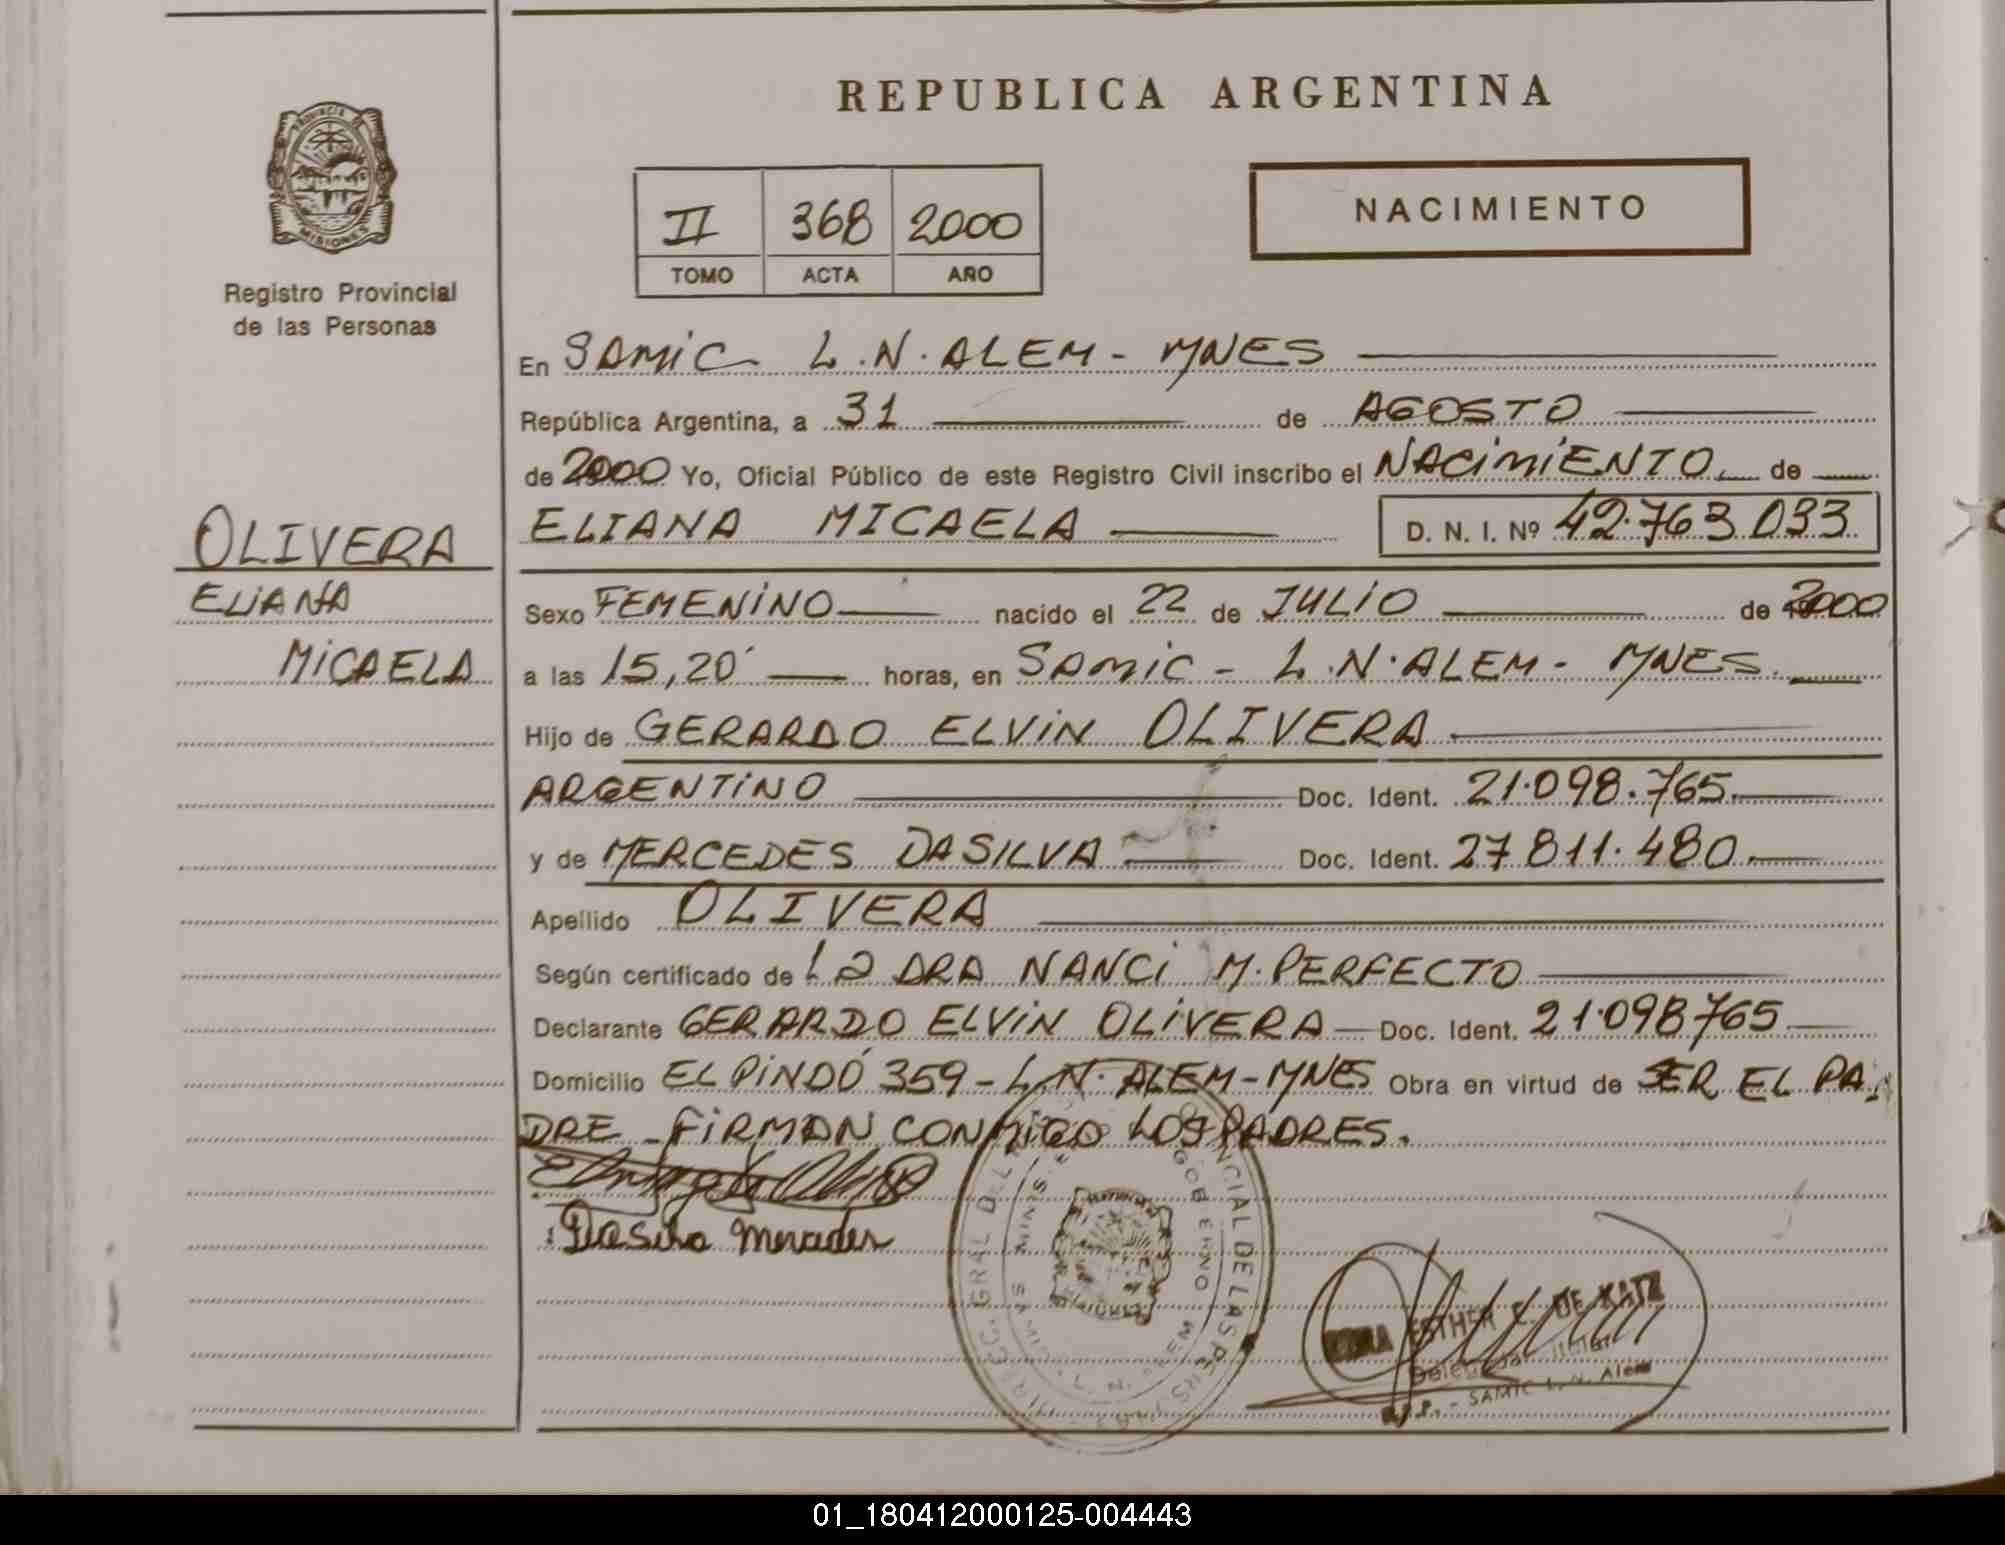 REPUBLICA ARGENTINA
PROVINCIA DE
MISIONES
Registro Provincial
de las Personas
II 368 2000
TOMO ACTA AÑO
NACIMIENTO
En SAMIC L.N. ALEM - MNES
República Argentina, a 31 de AGOSTO
de 2000 Yo, Oficial Público de este Registro Civil inscribo el NACIMIENTO de
ELIANA MICAELA D. N. I. Nº 42.763.033
OLIVERA
ELIANA
MICAELA
Sexo FEMENINO nacido el 22 de JULIO de 2000
a las 15,20' horas, en SAMIC - L.N. ALEM - MNES.
Hijo de GERARDO ELVIN OLIVERA
ARGENTINO Doc. Ident. 21.098.765
y de MERCEDES DASILVA Doc. Ident. 27811.480
Apellido OLIVERA
Según certificado de La DRA NANCI M. PERFECTO
Declarante GERARDO ELVIN OLIVERA Doc. Ident. 21.098765
Domicilio EL PINDÓ 359 - L.N. ALEM - MNES Obra en virtud de SER EL PA
DRE - FIRMAN CONMIGO LOS PADRES.
DaSilva Mercedes
ESTHER E. DE KATZ
Titular
R.P.P. - SAMIC L. N. Alem
01_180412000125-004443